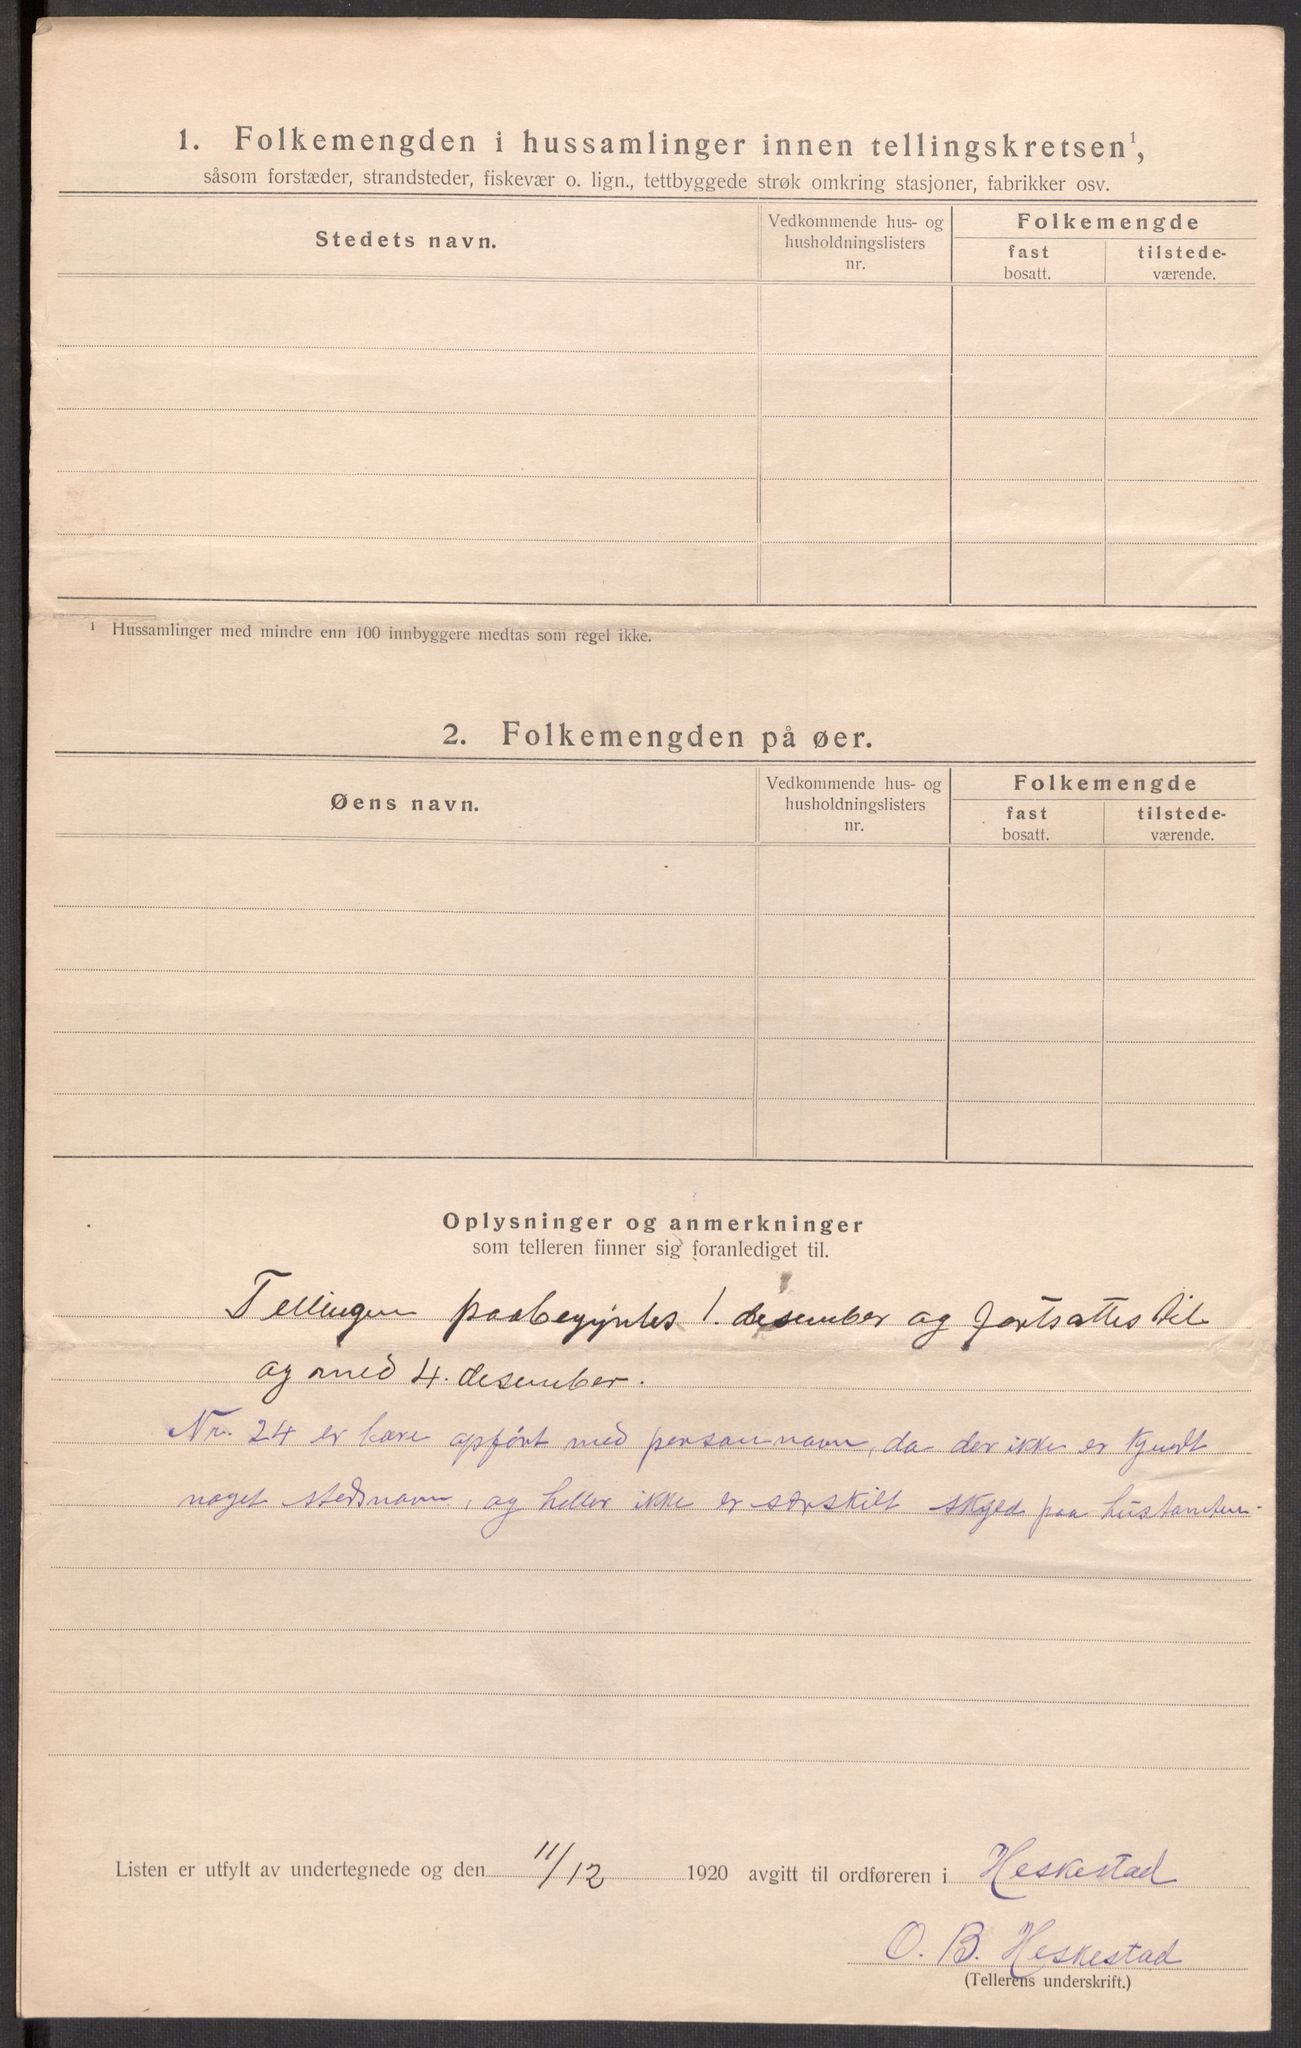 1. Folkemengden i hussamlinger innen tellingskretsen¹,
såsom forstæder, strandsteder, fiskevær o. lign., tettbyggede strøk omkring stasjoner, fabrikker osv.
Stedets navn.
Vedkommende hus- og
husholdningslisters
nr.
Folkemengde
fast
bosatt.
tilstede-
værende.
¹ Hussamlinger med mindre enn 100 innbyggere medtas som regel ikke.
2. Folkemengden på øer.
Øens navn.
Vedkommende hus- og
husholdningslisters
nr.
Folkemengde
fast
bosatt.
tilstede-
værende.
Oplysninger og anmerkninger
som telleren finner sig foranlediget til.
Tellingen paabegyntes 1. desember og fortsattes til
og med 4. desember.
Nr. 24 er bare opført med personnavn, da der ikke er kjendt
noget stedsnavn, og heller ikke er særskilt skyld paa hustomten.
Listen er utfylt av undertegnede og den 11/12 1920 avgitt til ordføreren i Heskestad
O. B. Heskestad
(Tellerens underskrift.)